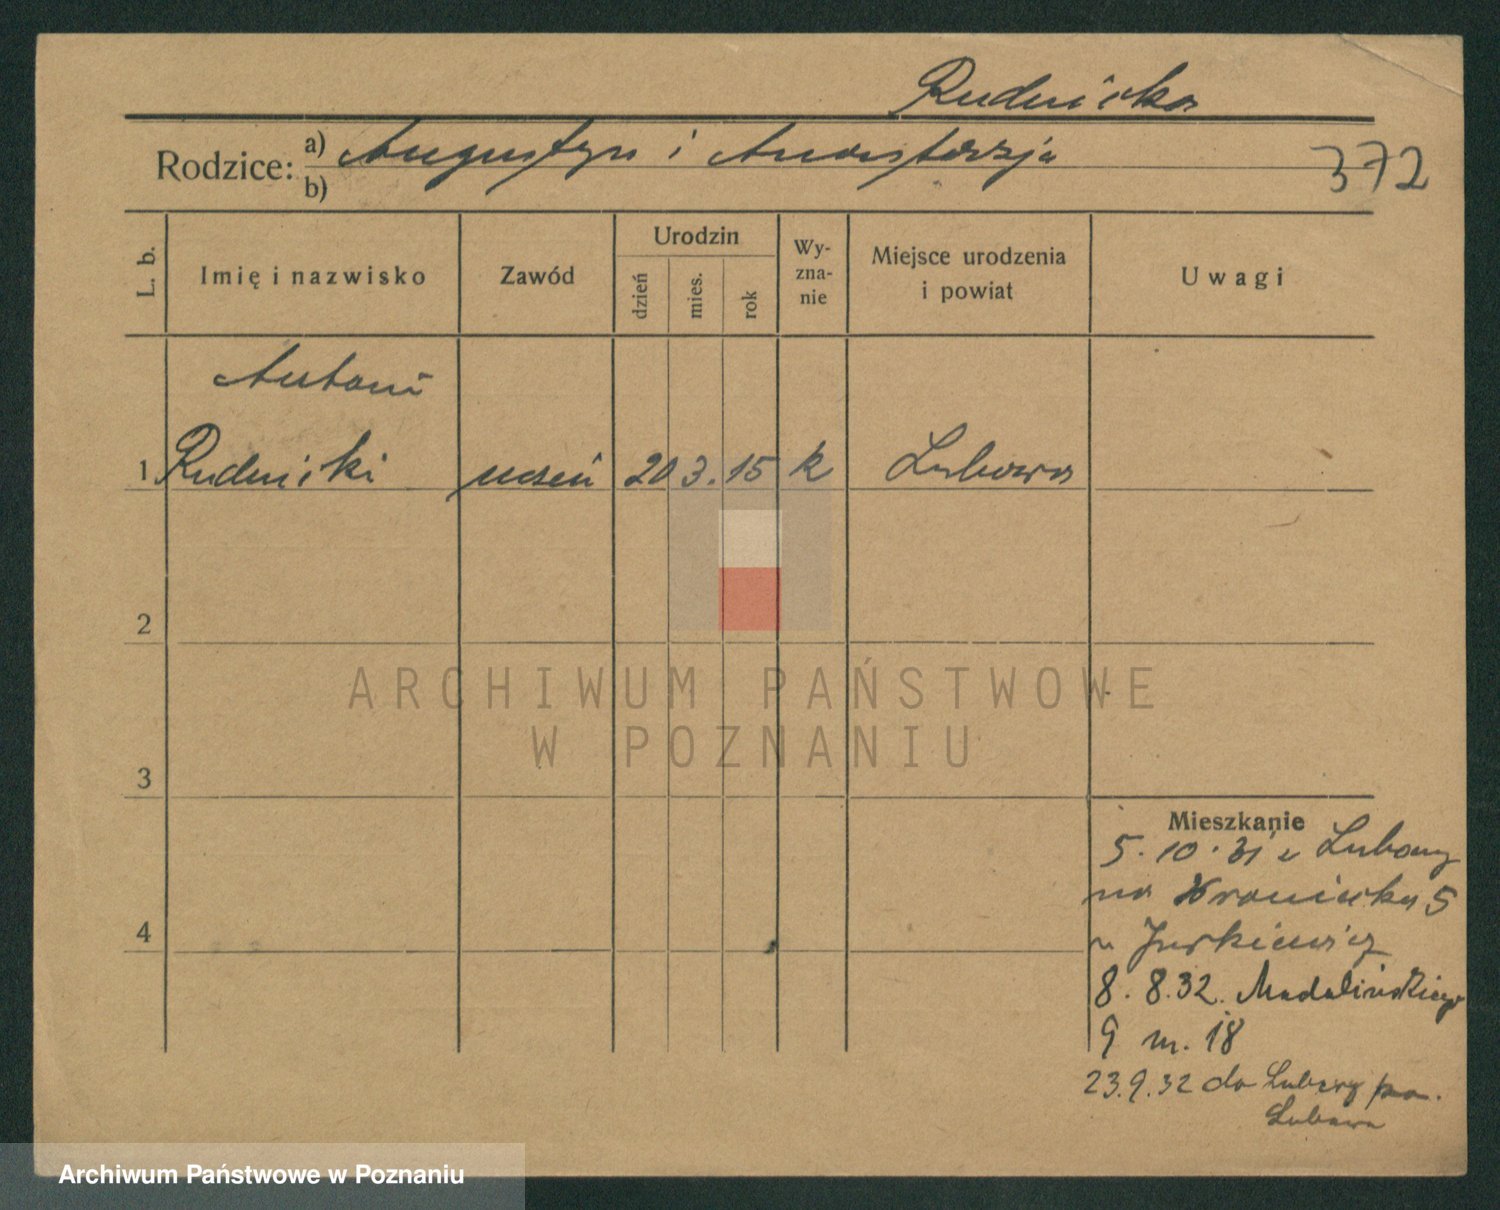 Rudnicka
Rodzice: a) Augustyn i Anastazja
b)
372
L. b.
Imię i nazwisko
Zawód
Urodzin
dzień
mies.
rok
Wy-
zna-
nie
Miejsce urodzenia
i powiat
Uwagi
Antoni
1 Rudnicki uczeń 20 3. 15 k Lubawa
2
3
4
Mieszkanie
5. 10. 31 z Lubawy
na Wroniecka 5
u Jurkiewicz
8. 8. 32. Madalińskiego
9 m. 18
23.9.32 do Lubawy pow.
Lubawa
ARCHIWUM PAŃSTWOWE
W POZNANIU
Archiwum Państwowe w Poznaniu